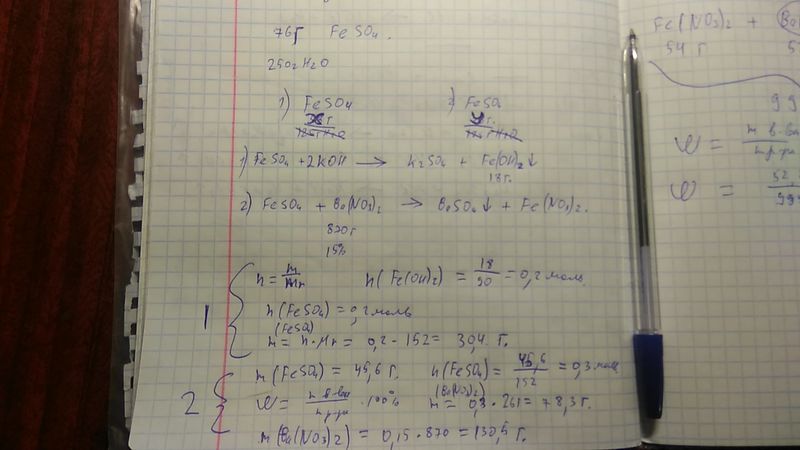 76г FeSO₄.
250г H₂O
1) FeSO₄
2) FeSO₄
1) FeSO₄ + 2KOH → K₂SO₄ + Fe(OH)₂↓
18г.
2) FeSO₄ + Ba(NO₃)₂ → BaSO₄↓ + Fe(NO₃)₂.
870г
15%
1
n = m/Mr n(Fe(OH)₂) = 18/90 = 0,2 моль.
n(FeSO₄) = 0,2 моль
(FeSO₄)
m = n · Mr = 0,2 · 152 = 30,4 г.
2
m(FeSO₄) = 45,6 г. n(FeSO₄) = 45,6/152 = 0,3 моль
(Ba(NO₃)₂)
W = m в-ва/m р-ра · 100% m = 0,3 · 261 = 78,3 г.
m(Ba(NO₃)₂) = 0,15 · 870 = 130,5 г.
Fe(NO₃)₂ + Ba
54 г 5
99
W = m в-ва/m р-ра
W = 52,/99